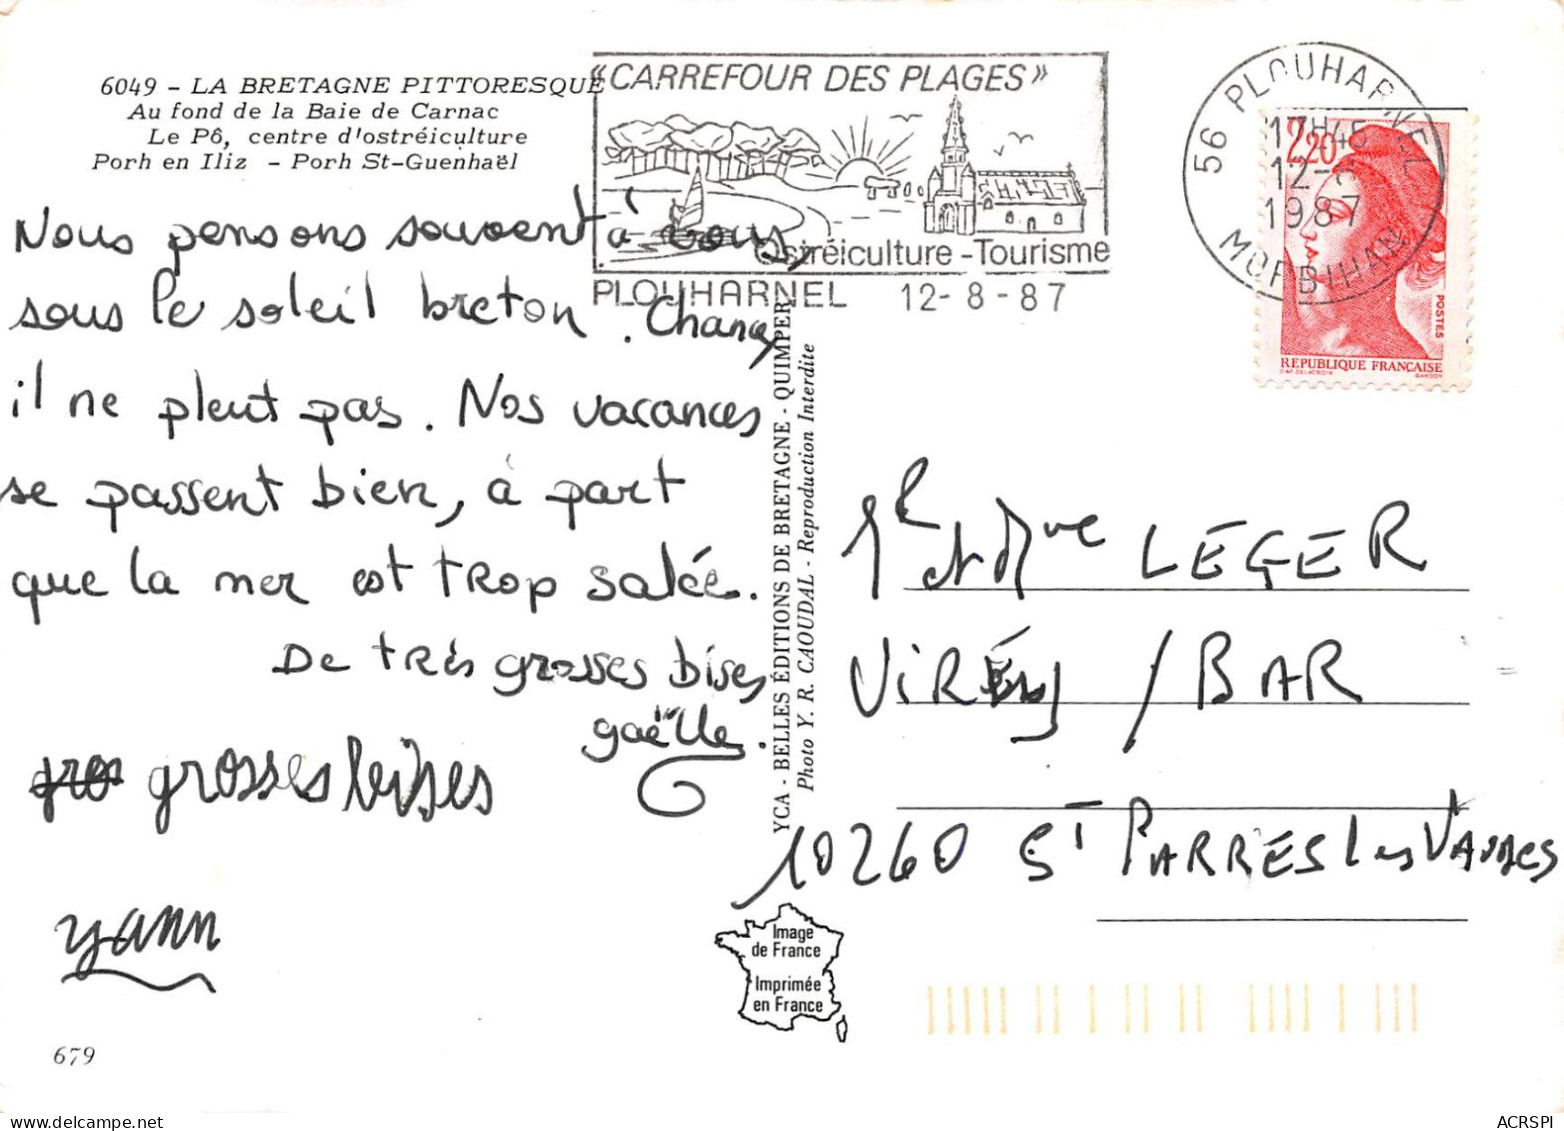 6049 - LA BRETAGNE PITTORESQUE
Au fond de la Baie de Carnac
Le Pô, centre d'ostréiculture
Porh en Iliz - Porh St-Guenhaël
"CARREFOUR DES PLAGES"
Ostréiculture - Tourisme
PLOUHARNEL 12-8-87
56 PLOUHARNEL
12-8
1987
MORBIHAN
2,20
POSTES
REPUBLIQUE FRANÇAISE
Nous pensons souvent à vous,
sous le soleil breton. Chance
il ne pleut pas. Nos vacances
se passent bien, à part
que la mer est trop salée.
De très grosses bises
gaëlle.
gros grosses bises
yann
679
YCA - BELLES ÉDITIONS DE BRETAGNE - QUIMPER
Photo Y. R. CAOUDAL - Reproduction Interdite
et Mme LEGER
VIREY / BAR
10260 St PARRES les VAUDES
Image
de France
Imprimée
en France
ACRSPI